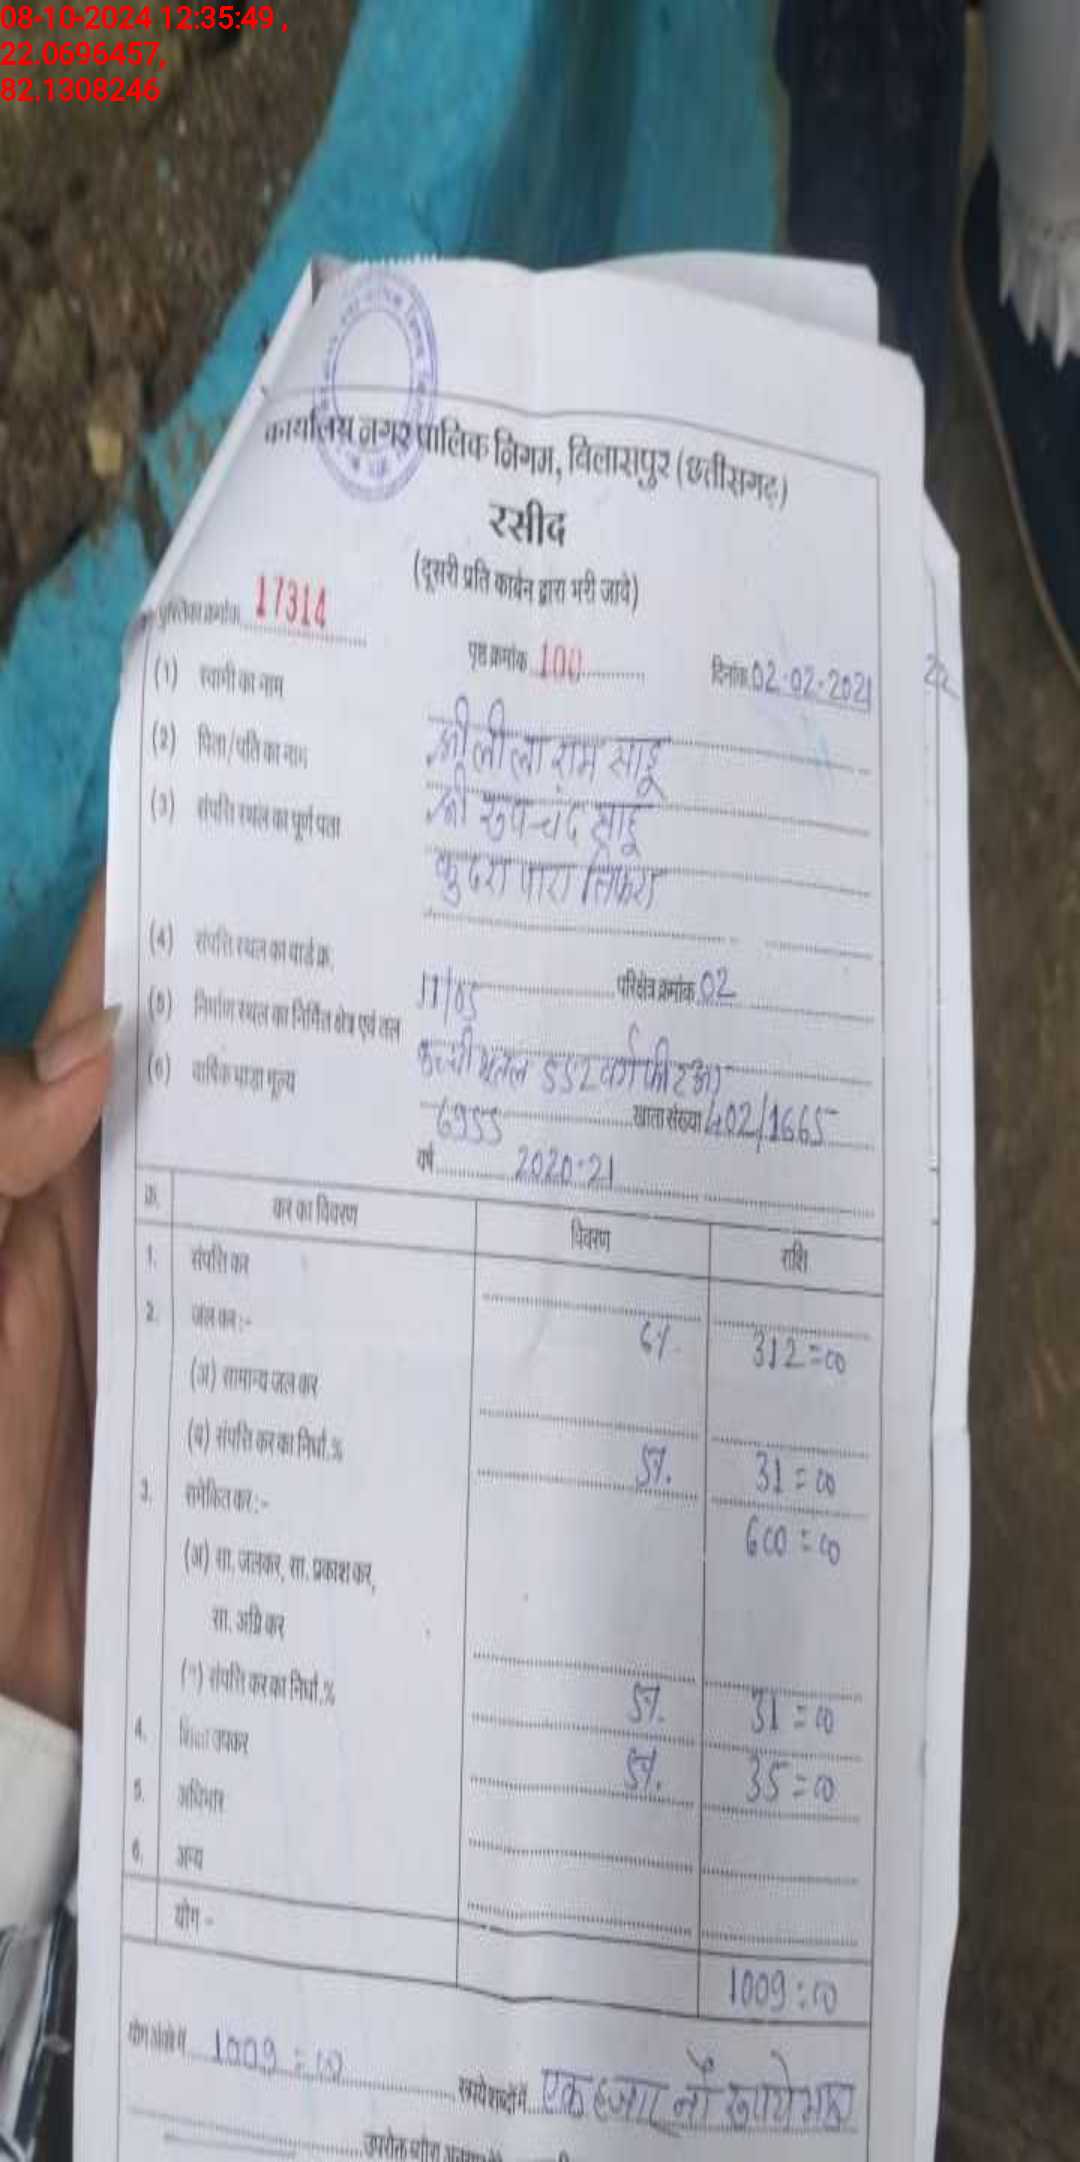 08-10-2024 12:35:49 ,
22.0696457,
82.1308246
कार्यालय नगर पालिक निगम, बिलासपुर (छत्तीसगढ़)
रसीद
(दूसरी प्रति कार्बन द्वारा भरी जावे)
पुस्तिका क्रमांक 17314 पृष्ठ क्रमांक 100 दिनांक 02-02-2021
(1) स्वामी का नाम श्री लीला राम साहू
(2) पिता/पति का नाम श्री रूपचंद साहू
(3) संपत्ति स्थल का पूर्ण पता कुदरा पारा तिफरा
(4) संपत्ति स्थल का वार्ड क्र. 11/05 परिक्षेत्र क्रमांक 02
(5) निर्माण स्थल का निर्मित क्षेत्र एवं तल कच्ची भूतल 552 वर्गफीट
(6) वार्षिक भाड़ा मूल्य 6955 खाता संख्या 402/1665
वर्ष 2020-21
क्र. कर का विवरण विवरण राशि
1. संपत्ति कर 6% 312=00
2. जल कर :-
(अ) सामान्य जल कर
(ब) संपत्ति कर का निर्धा.% 5%. 31=00
3. समेकित कर :- 600=00
(अ) सा. जलकर, सा. प्रकाश कर,
सा. अग्नि कर
संपत्ति कर का निर्धा.% 5%. 31=00
4. उपकर 5%. 35=00
5. अधिभार
6. अन्य
योग - 1009=00
योग अंकों में 1009=00 रूपये शब्दों में एक हजार नौ रूपये मात्र
22